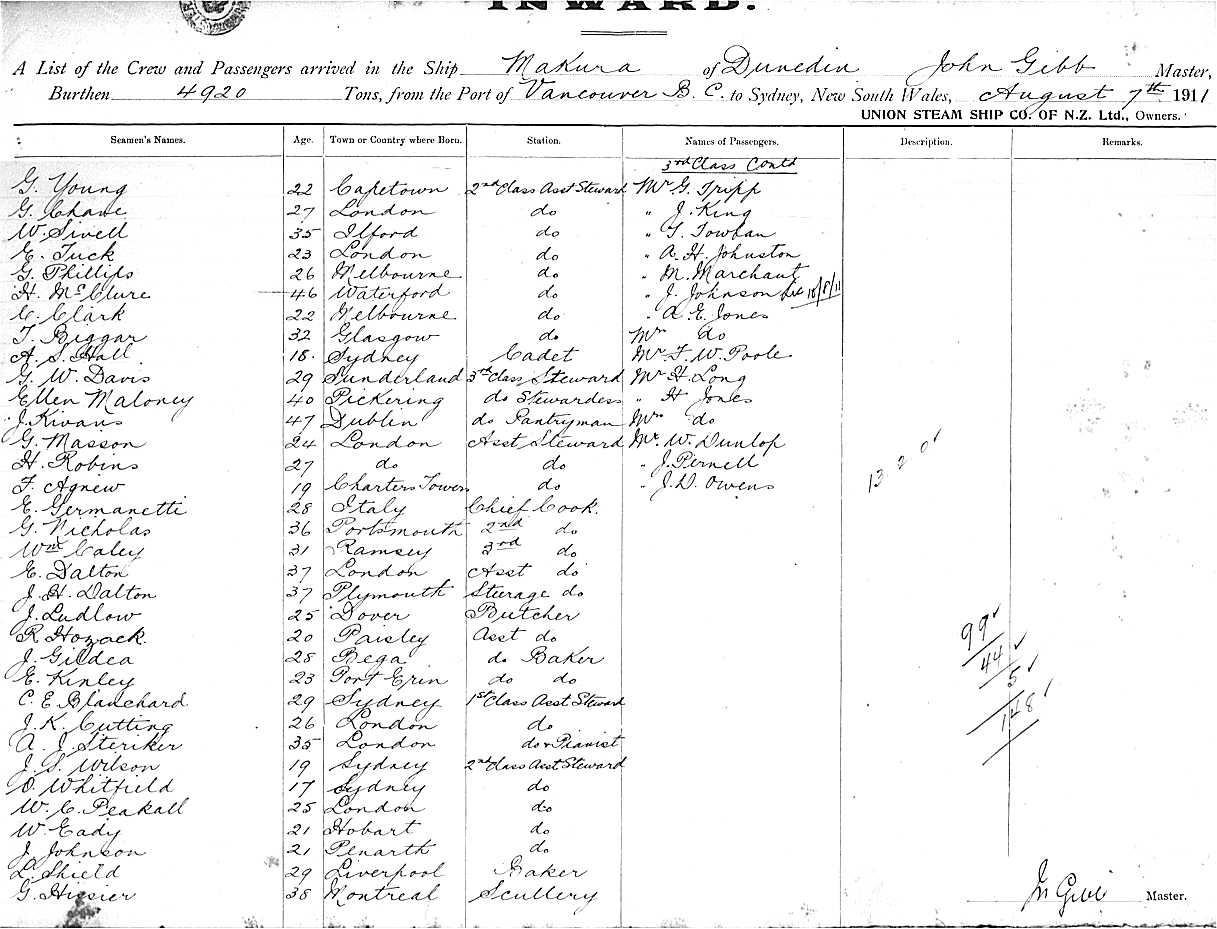 INWARD.
A List of the Crew and Passengers arrived in the Ship Makura of Dunedin John Gibb Master,
Burthen 4920 Tons, from the Port of Vancouver B. C. to Sydney, New South Wales, August 7th 1911
UNION STEAM SHIP CO. OF N.Z. Ltd., Owners.
Seamen's Names. Age. Town or Country where Born. Station. Names of Passengers. Description. Remarks.
3rd Class Contd
G. Young 22 Capetown 2nd Class Asst Steward Mr G. Tripp
G. Chave 27 London do " J. King
W. Sivell 35 Ilford do " T. Towhan
E. Tuck 23 London do " A. H. Johnston
G. Phillips 26 Melbourne do " M. Marchant
H. McClure 46 Waterford do " J. Johnson 10/8/11
C. Clark 22 Melbourne do " A. E. Jones
T. Biggar 32 Glasgow do Mrs do
A. S. Hall 18. Sydney Cadet Mr F. W. Poole
G. W. Davis 29 Sunderland 3rd Class Steward Mr H. Long
Ellen Maloney 40 Pickering do Stewardess " H Jones
J. Kivans 47 Dublin do Pantryman Mrs do
G. Masson 24 London Asst Steward Mr W. Dunlop
H. Robins 27 do do " J. Pernell
F. Agnew 19 Charters Towers do " J. D. Owens
1320
E. Germanetti 28 Italy Chief Cook.
G. Nicholas 36 Portsmouth 2nd do
Wm Caley 31 Ramsey 3rd do
E. Dalton 37 London Asst do
J. H. Dalton 37 Plymouth Steerage do
J. Ludlow 25 Dover Butcher
R Hozack. 20 Paisley Asst do
99
J. Gildea 28 Bega do Baker
44
E. Kinley 23 Port Erin do do
5
C. E. Blanchard 29 Sydney 1st Class Asst Steward
148
J. K. Cutting 26 London do
A. J. Steriker 35 London do & Pianist
J. S. Wilson 19 Sydney 2nd Class Asst Steward
O. Whitfield 17 Sydney do
W. C. Peakall 25 London do
W. Eady 21 Hobart do
J. Johnson 21 Penarth do
L. Shield 29 Liverpool Baker
G. Hissier 38 Montreal Scullery
Jn Gibb Master.